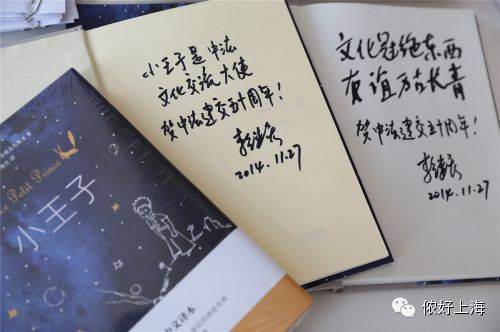 小王子是中法
文化交流大使
贺中法建交五十周年!
李继宏
2014.11.27
文化冠绝东西
友谊万古长青
贺中法建交五十周年!
李继宏
2014.11.27
Petit Prince
小王子
侬好上海